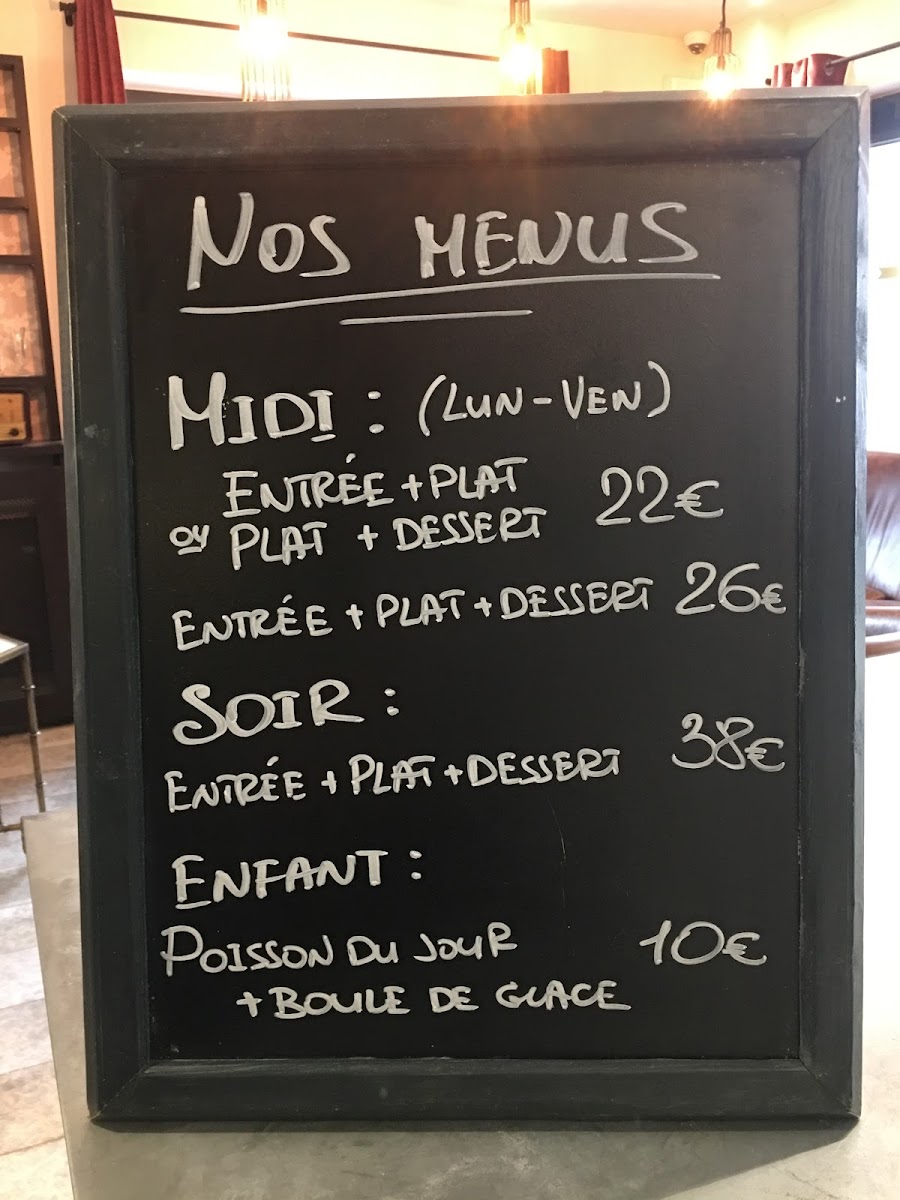 NOS MENUS
MIDI : (LUN-VEN)
ENTRÉE + PLAT
OU PLAT + DESSERT 22€
ENTRÉE + PLAT + DESSERT 26€
SOIR :
ENTRÉE + PLAT + DESSERT 38€
ENFANT :
POISSON DU JOUR 10€
+ BOULE DE GLACE